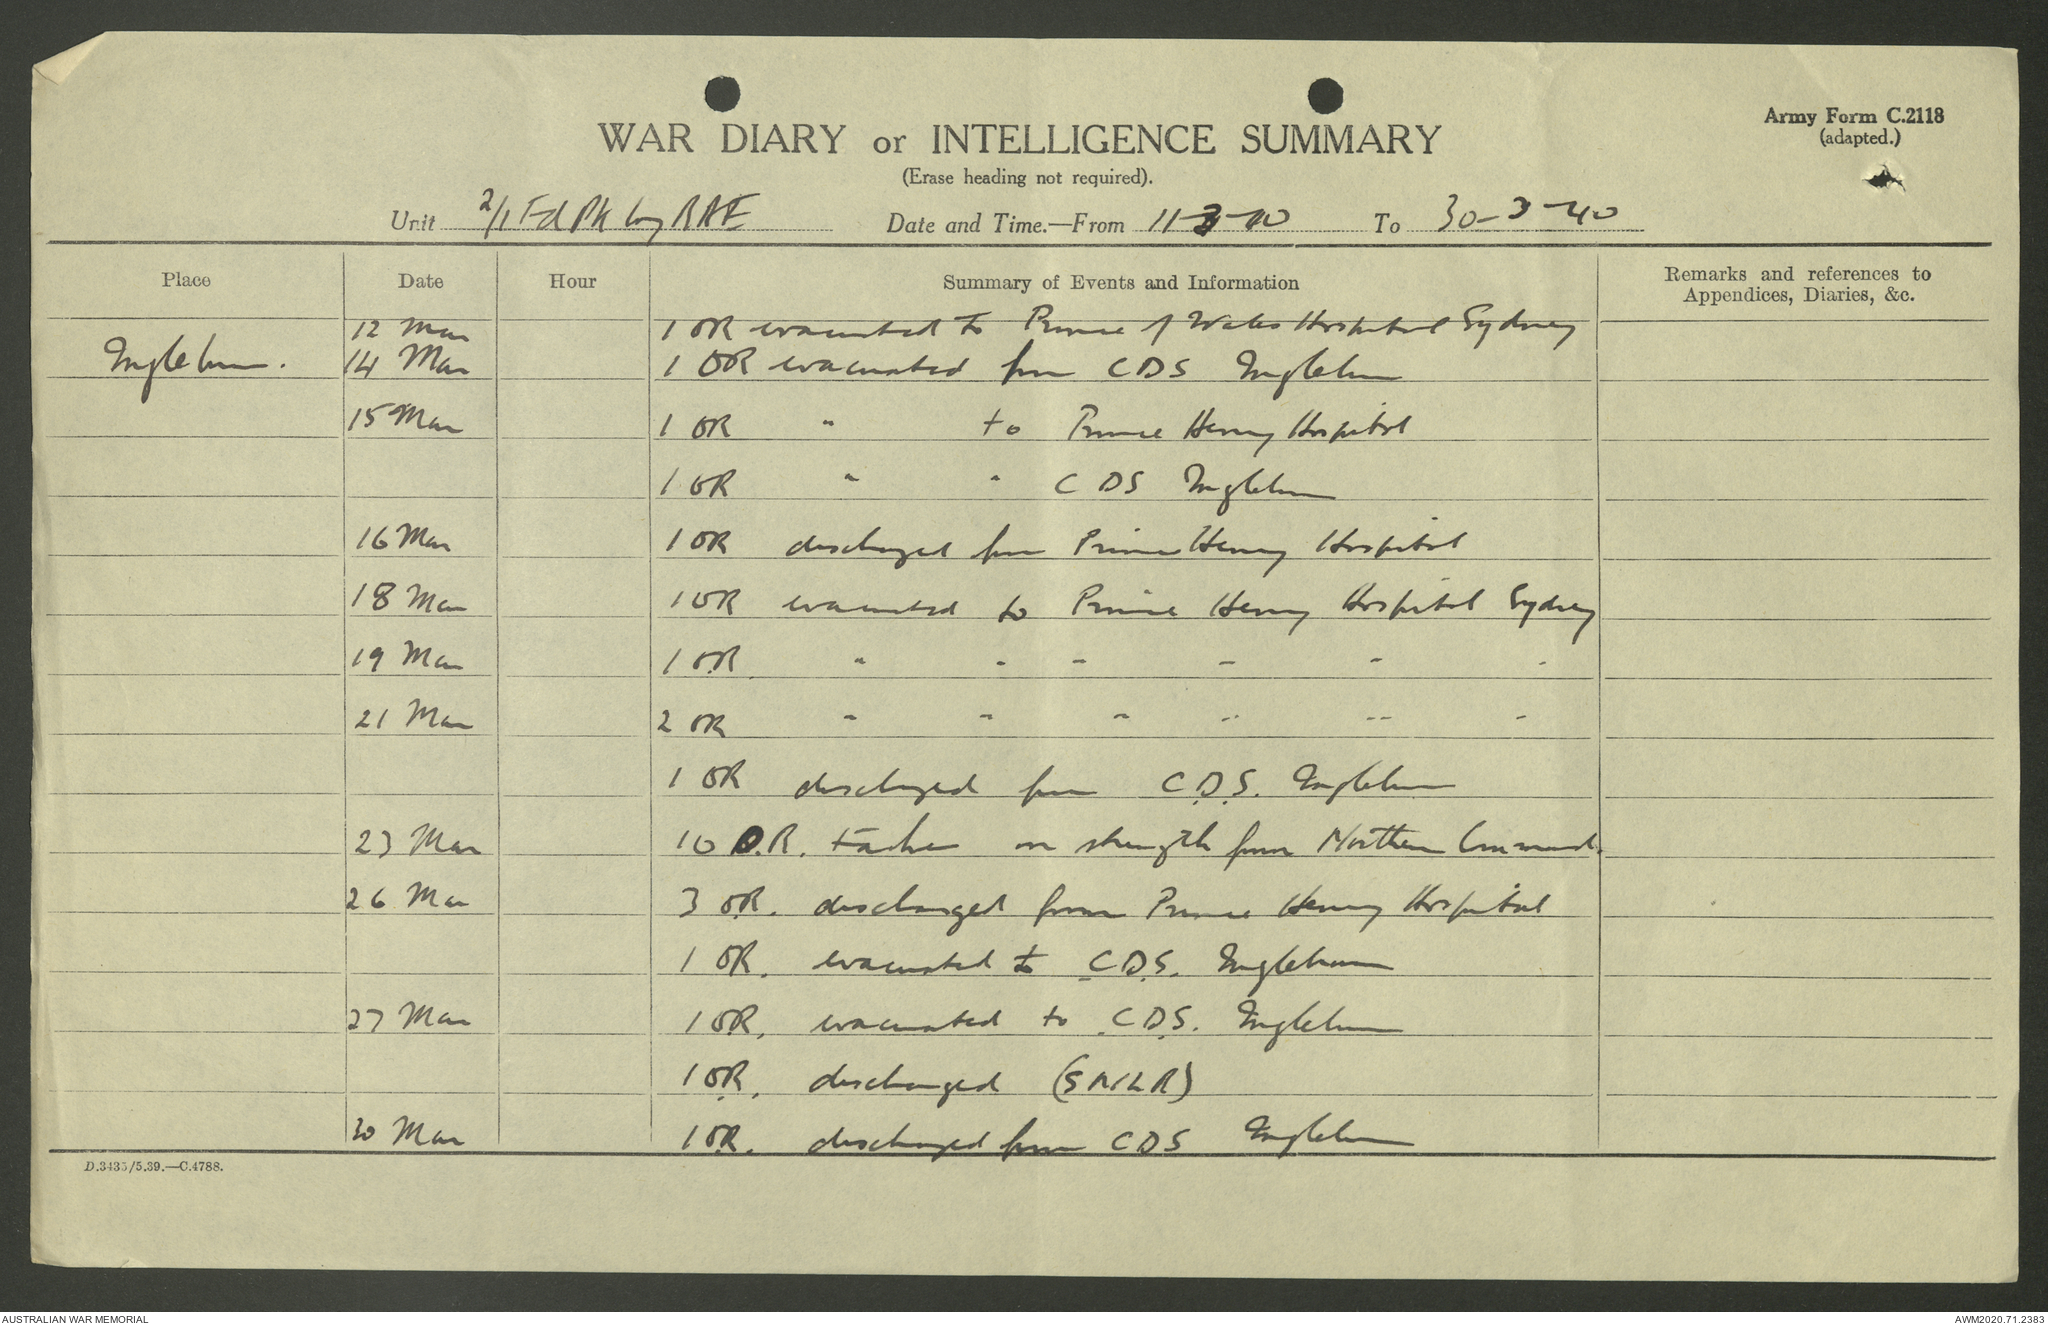 Army Form C.2118
(adapted.)
WAR DIARY or INTELLIGENCE SUMMARY
(Erase heading not required).
Unit 2/1 Fd Pk Coy RAE Date and Time.—From 11-3-40 To 30-3-40
Place Date Hour Summary of Events and Information Remarks and references to Appendices, Diaries, &c.
12 Mar 1 OR evacuated to Prince of Wales Hospital Sydney
Ingleburn. 14 Mar 1 OR evacuated from CDS Ingleburn
15 Mar 1 OR " to Prince Henry Hospital
1 OR " " CDS Ingleburn
16 Mar 1 OR discharged from Prince Henry Hospital
18 Mar 1 OR evacuated to Prince Henry Hospital Sydney
19 Mar 1 OR " " " " " "
21 Mar 2 OR " " " " " "
1 OR discharged from C.D.S. Ingleburn
23 Mar 10 O.R. taken on strength from Northern Command.
26 Mar 3 OR. discharged from Prince Henry Hospital
1 OR. evacuated to C.D.S. Ingleburn
27 Mar 1 OR. evacuated to C.D.S. Ingleburn
1 OR. discharged (SNLR)
30 Mar 1 OR. discharged from CDS Ingleburn
D.3435/5.39.—C.4788.
AUSTRALIAN WAR MEMORIAL AWM2020.71.2383